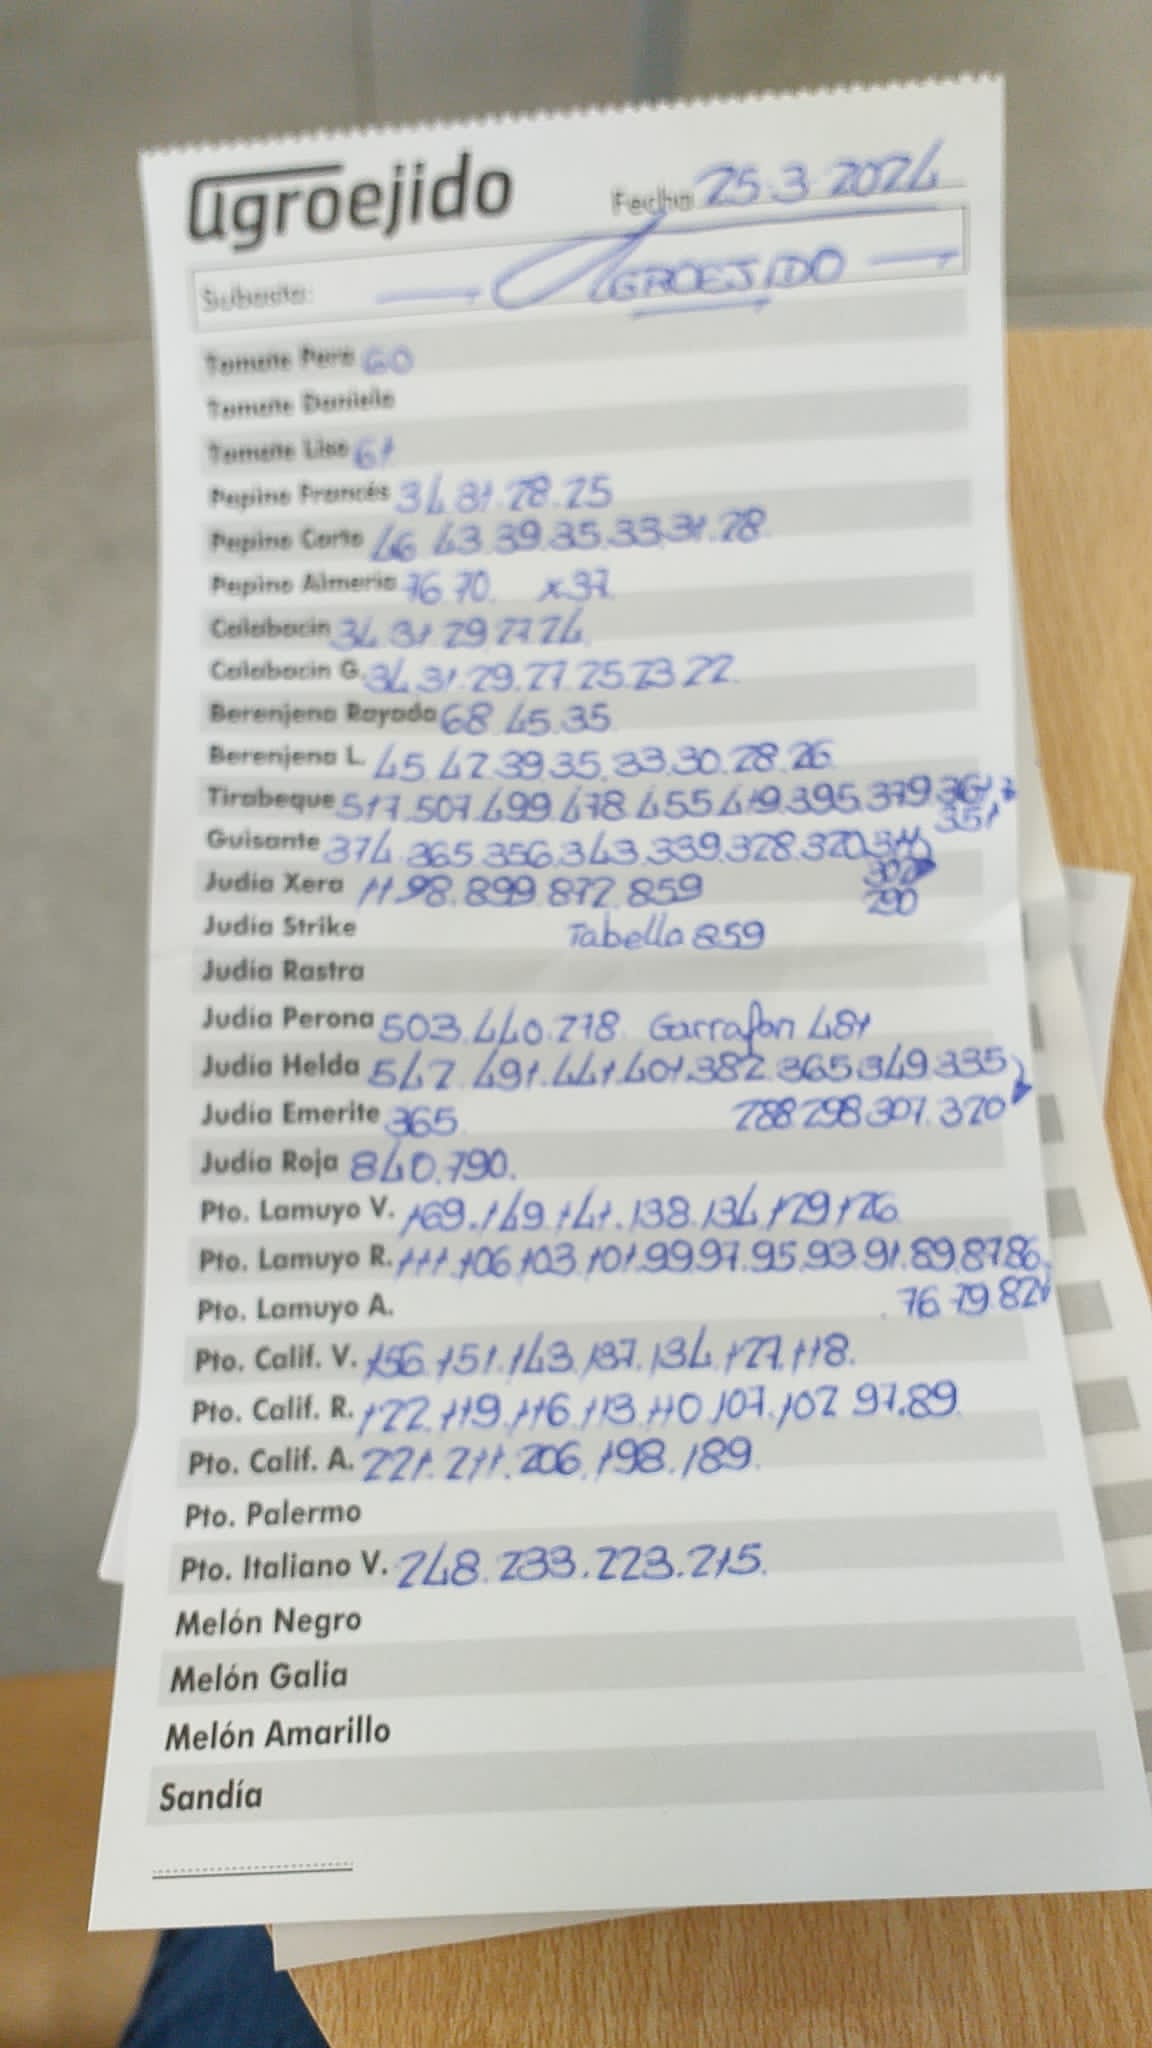 agroejido Fecha 25.3.2024
Subasta: AGROEJIDO
Tomate Pera 60
Tomate Daniela
Tomate Liso 61
Pepino Francés 34.31.28.25
Pepino Corto 46.43.39.35.33.31.28
Pepino Almería 76.70. x37
Calabacín 34.31.29.27.24
Calabacín G. 34.31.29.27.25.23.22
Berenjena Rayada 68.45.35
Berenjena L. 45.42.39.35.33.30.28.26
Tirabeque 517.507.499.478.455.419.395.379.361
351
Guisante 374.365.356.343.339.328.320.311
302
Judía Xera 1198.899.872.859
290
Judía Strike Tabella 859
Judía Rastra
Judía Perona 503.440.278. Garrafon 481
Judía Helda 542.491.441.401.382.365.349.335
Judía Emerite 365. 288.298.307.320
Judía Roja 840.790.
Pto. Lamuyo V. 169.149.141.138.134.129.126
Pto. Lamuyo R. 111.106.103.101.99.97.95.93.91.89.87.86
Pto. Lamuyo A. 76.79.82
Pto. Calif. V. 156.151.143.137.134.127.118.
Pto. Calif. R. 122.119.116.113.110.107.102.97.89
Pto. Calif. A. 221.211.206.198.189.
Pto. Palermo
Pto. Italiano V. 248.233.223.215.
Melón Negro
Melón Galia
Melón Amarillo
Sandía